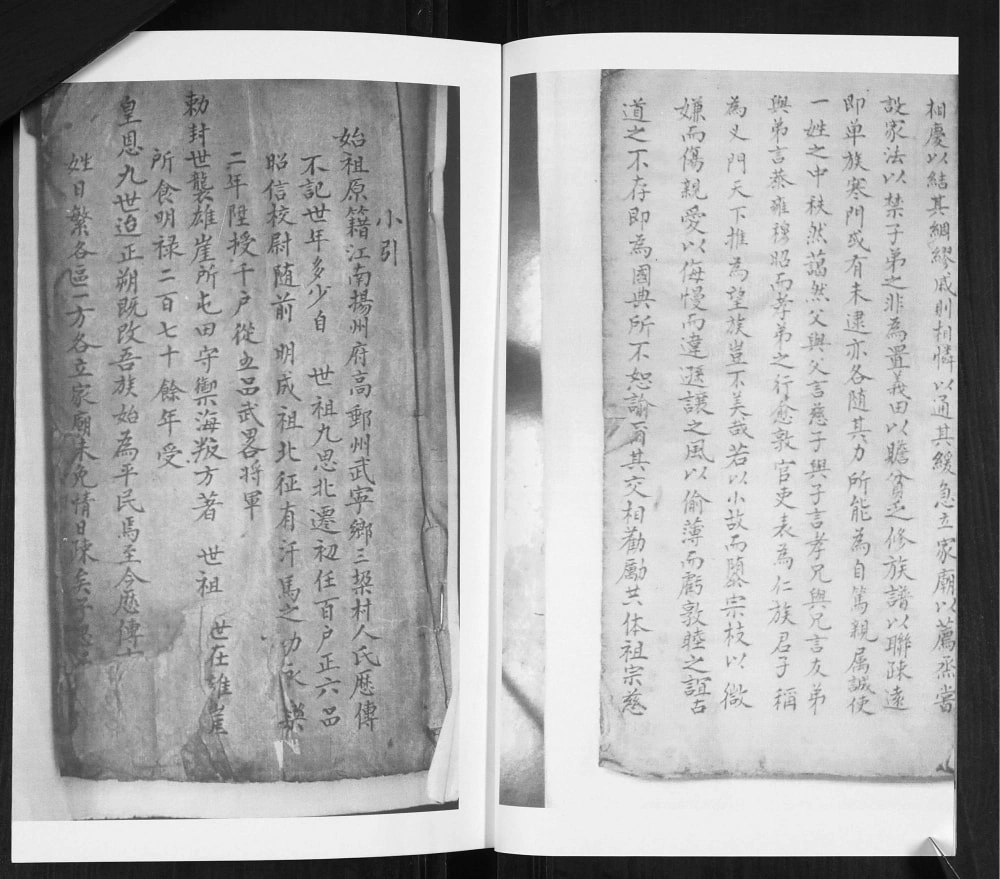 相慶以結其綢繆戚則相憐以通其緩急立家廟以薦烝嘗
設家法以禁子弟之非為置義田以贍貧乏修族譜以聯疎遠
即单族寒門或有未逮亦各随其力所能為自篤親属誠使
一姓之中秩然藹然父與父言慈子與子言孝兄與兄言友弟
與弟言恭雍穆昭而孝弟之行愈敦官吏表為仁族君子稱
為义門天下推為望族豈不美哉若以小故而隳宗枝以微
嫌而傷親愛以侮慢而違遜讓之風以偷薄而虧敦睦之誼古
道之不存即為國典所不恕諭爾其交相勸勵共体祖宗慈
小引
始祖原籍江南揚州府高郵州武寧鄉三垜村人氏歷傳
不記世年多少自 世祖九思北遷初任百户正六品
昭信校尉随前 明成祖北征有汗馬之功永樂
二年陞授千户從五品武畧将軍
勅封世襲雄崖所屯田守禦海叛方著 世祖 世在雄崖
所食明禄二百七十餘年受
皇恩九世迨正朔既改吾族始為平民焉至今歷傳十
姓日繁各區一方各立家廟未免情日踈矣